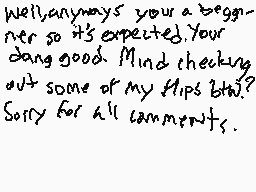 Well, anyways your a beggi-
ner so it's expected. Your
dang good. Mind checking
out some of my flips btw?
Sorry for all comments.